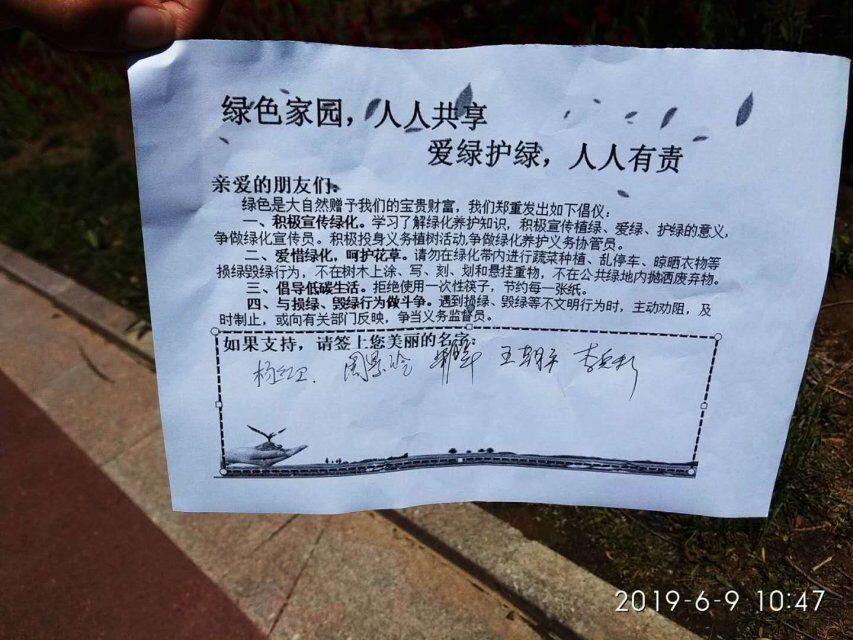 绿色家园，人人共享
爱绿护绿，人人有责
亲爱的朋友们：
绿色是大自然赠予我们的宝贵财富，我们郑重发出如下倡议：
一、积极宣传绿化。学习了解绿化养护知识，积极宣传植绿、爱绿、护绿的意义，
争做绿化宣传员。积极投身义务植树活动,争做绿化养护义务协管员。
二、爱惜绿化，呵护花草。请勿在绿化带内进行蔬菜种植、乱停车、晾晒衣物等
损绿毁绿行为，不在树木上涂、写、刻、划和悬挂重物，不在公共绿地内抛洒废弃物。
三、倡导低碳生活。拒绝使用一次性筷子，节约每一张纸。
四、与损绿、毁绿行为做斗争。遇到损绿、毁绿等不文明行为时，主动劝阻，及
时制止，或向有关部门反映，争当义务监督员。
如果支持，请签上您美丽的名字：
王朝平
2019-6-9 10:47